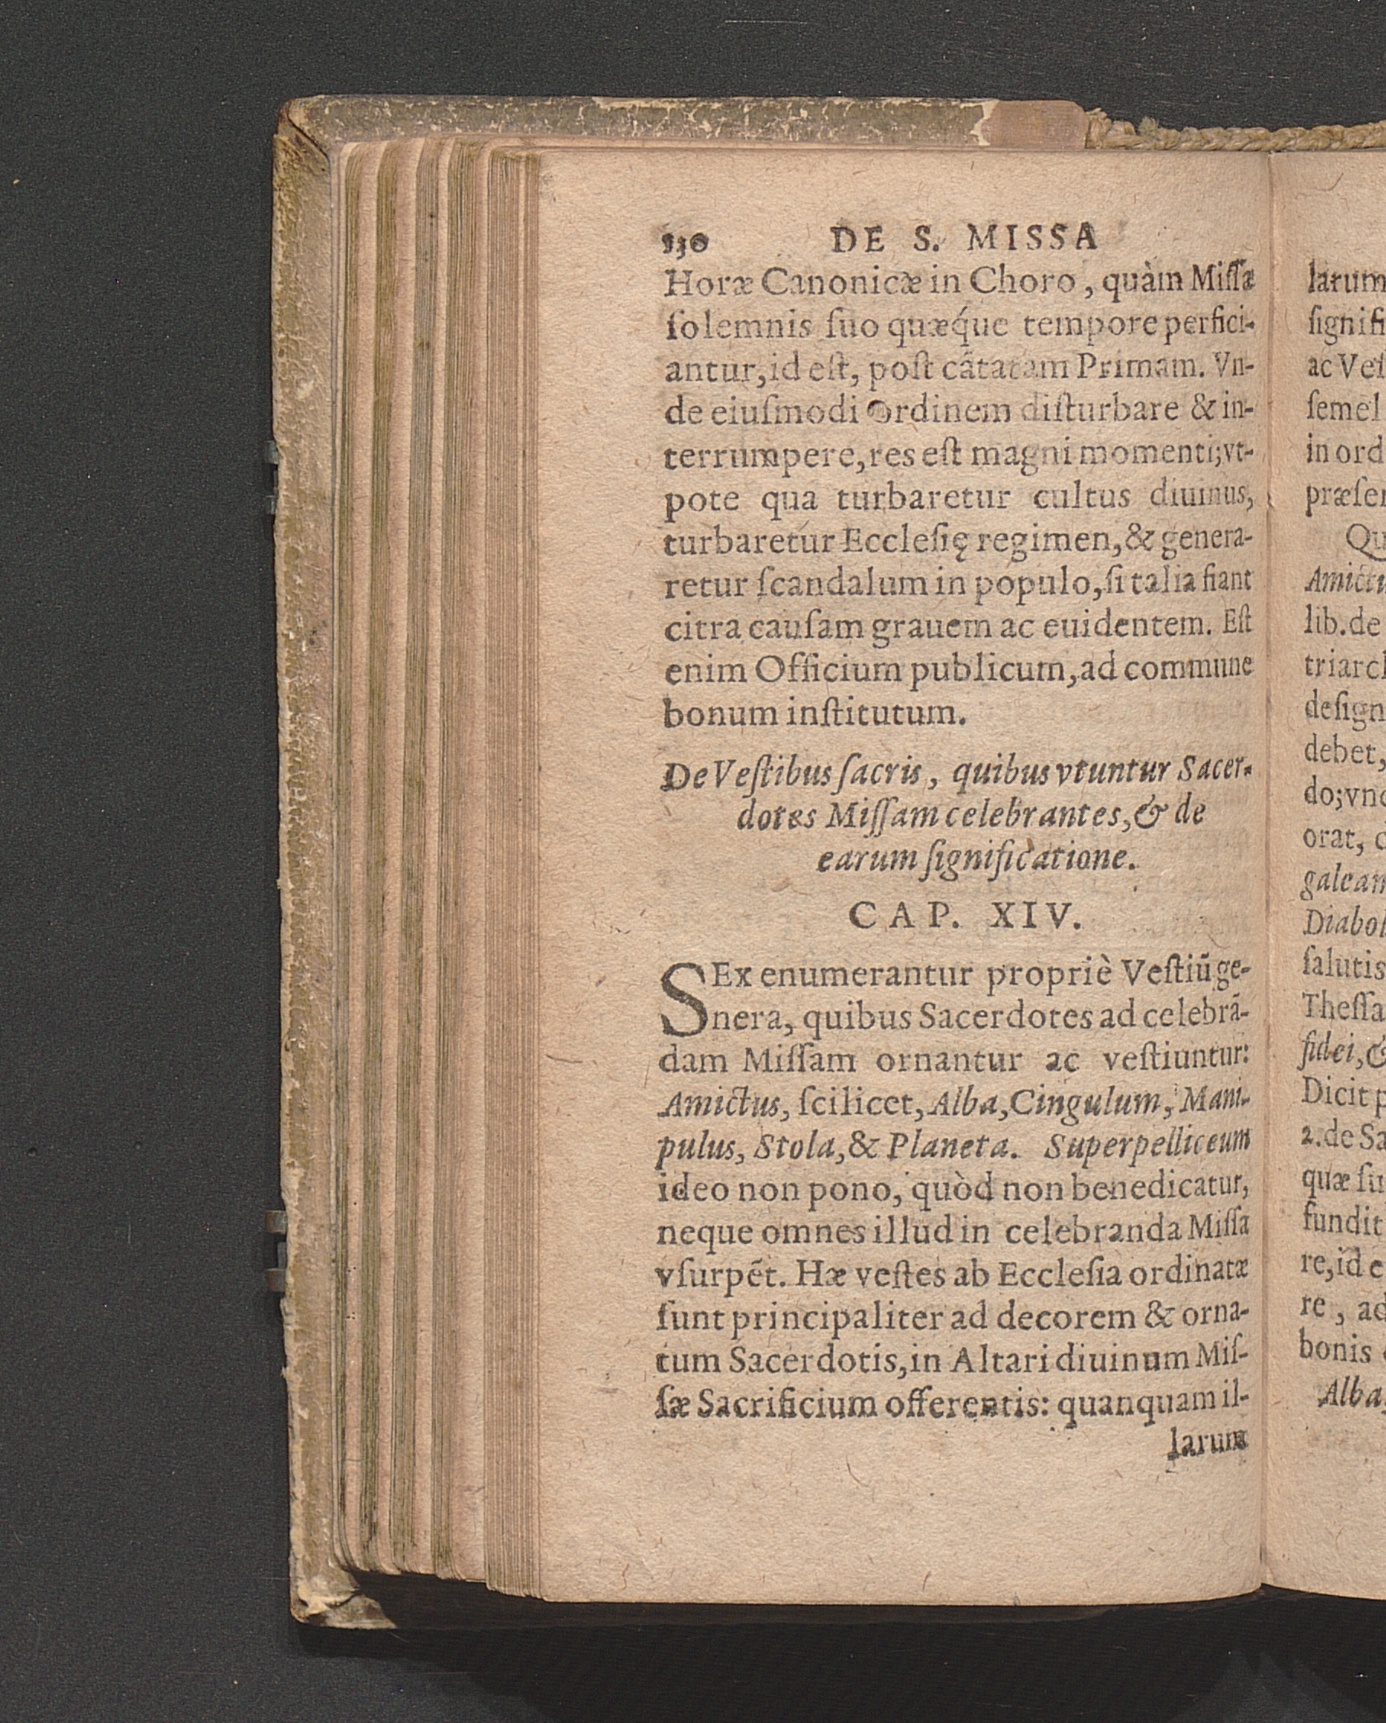 130 DE S. MISSA
Horæ Canonicæ in Choro, quàm Miſſæ
ſolemnis ſuo quæq́ue tempore perfici-
antur, id eſt, poſt cãtatam Primam. Vn-
de eiuſmodi Ordinem diſturbare & in-
terrumpere, res eſt magni momenti; vt-
pote qua turbaretur cultus diuinus,
turbaretur Eccleſię regimen, & genera-
retur ſcandalum in populo, ſi talia fiant
citra cauſam grauem ac euidentem. Eſt
enim Officium publicum, ad commune
bonum inſtitutum.
De Veſtibus ſacris, quibus vtuntur Sacer-
dotes Miſſam celebrantes, & de
earum ſignificatione.
CAP. XIV.
SEx enumerantur propriè Veſtiũ ge-
nera, quibus Sacerdotes ad celebrã-
dam Miſſam ornantur ac veſtiuntur:
Amictus, ſcilicet, Alba, Cingulum, Mani-
pulus, Stola, & Planeta. Superpelliceum
ideo non pono, quòd non benedicatur,
neque omnes illud in celebranda Miſſa
vſurpẽt. Hæ veſtes ab Eccleſia ordinatæ
ſunt principaliter ad decorem & orna-
tum Sacerdotis, in Altari diuinum Miſ-
ſæ Sacrificium offerentis: quanquam il-
larum
larum
ſignifi
ac Veſ
ſemel
in ord
præſer
Qu
Amictu
lib. de
triarch
deſign
debet,
do; vnd
orat,
galeam
Diabol
ſalutis
Theſſa
fidei, &
Dicit p
2. de Sa
quæ ſu
fundit
re, id e
re, ad
bonis
Alba,